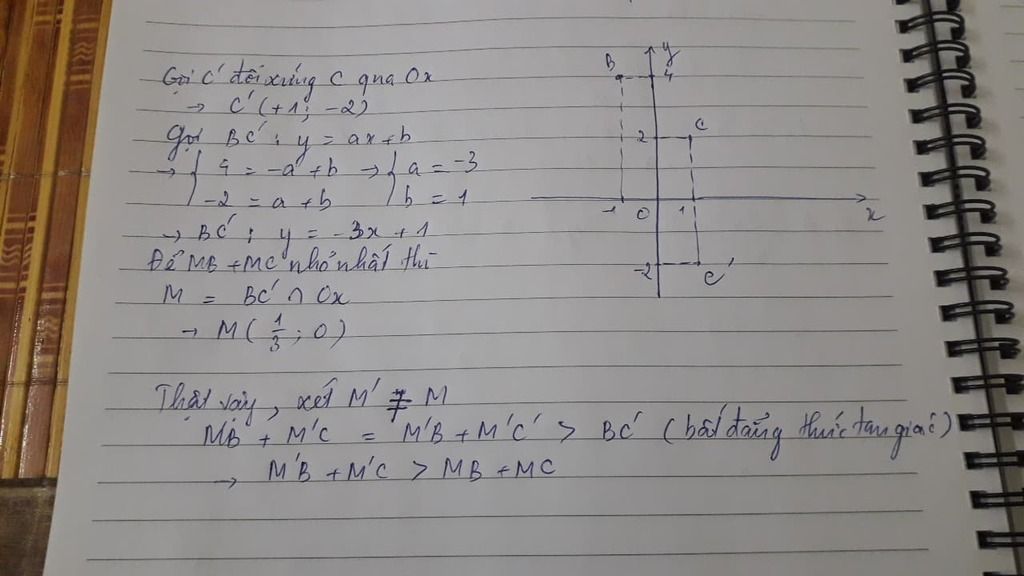 Gọi C' đối xứng C qua Ox
→ C'(+1; -2)
Gọi BC': y = ax+b
→ { 4 = -a + b → { a = -3
-2 = a + b b = 1
→ BC': y = -3x + 1
Để MB + MC nhỏ nhất thì
M = BC' ∩ Ox
→ M(1/3; 0)
Thật vậy, xét M' ≠ M
M'B + M'C = M'B + M'C' > BC' (bất đẳng thức tam giác)
→ M'B + M'C > MB + MC
y
B
4
2
C
-1
0
1
x
-2
C'